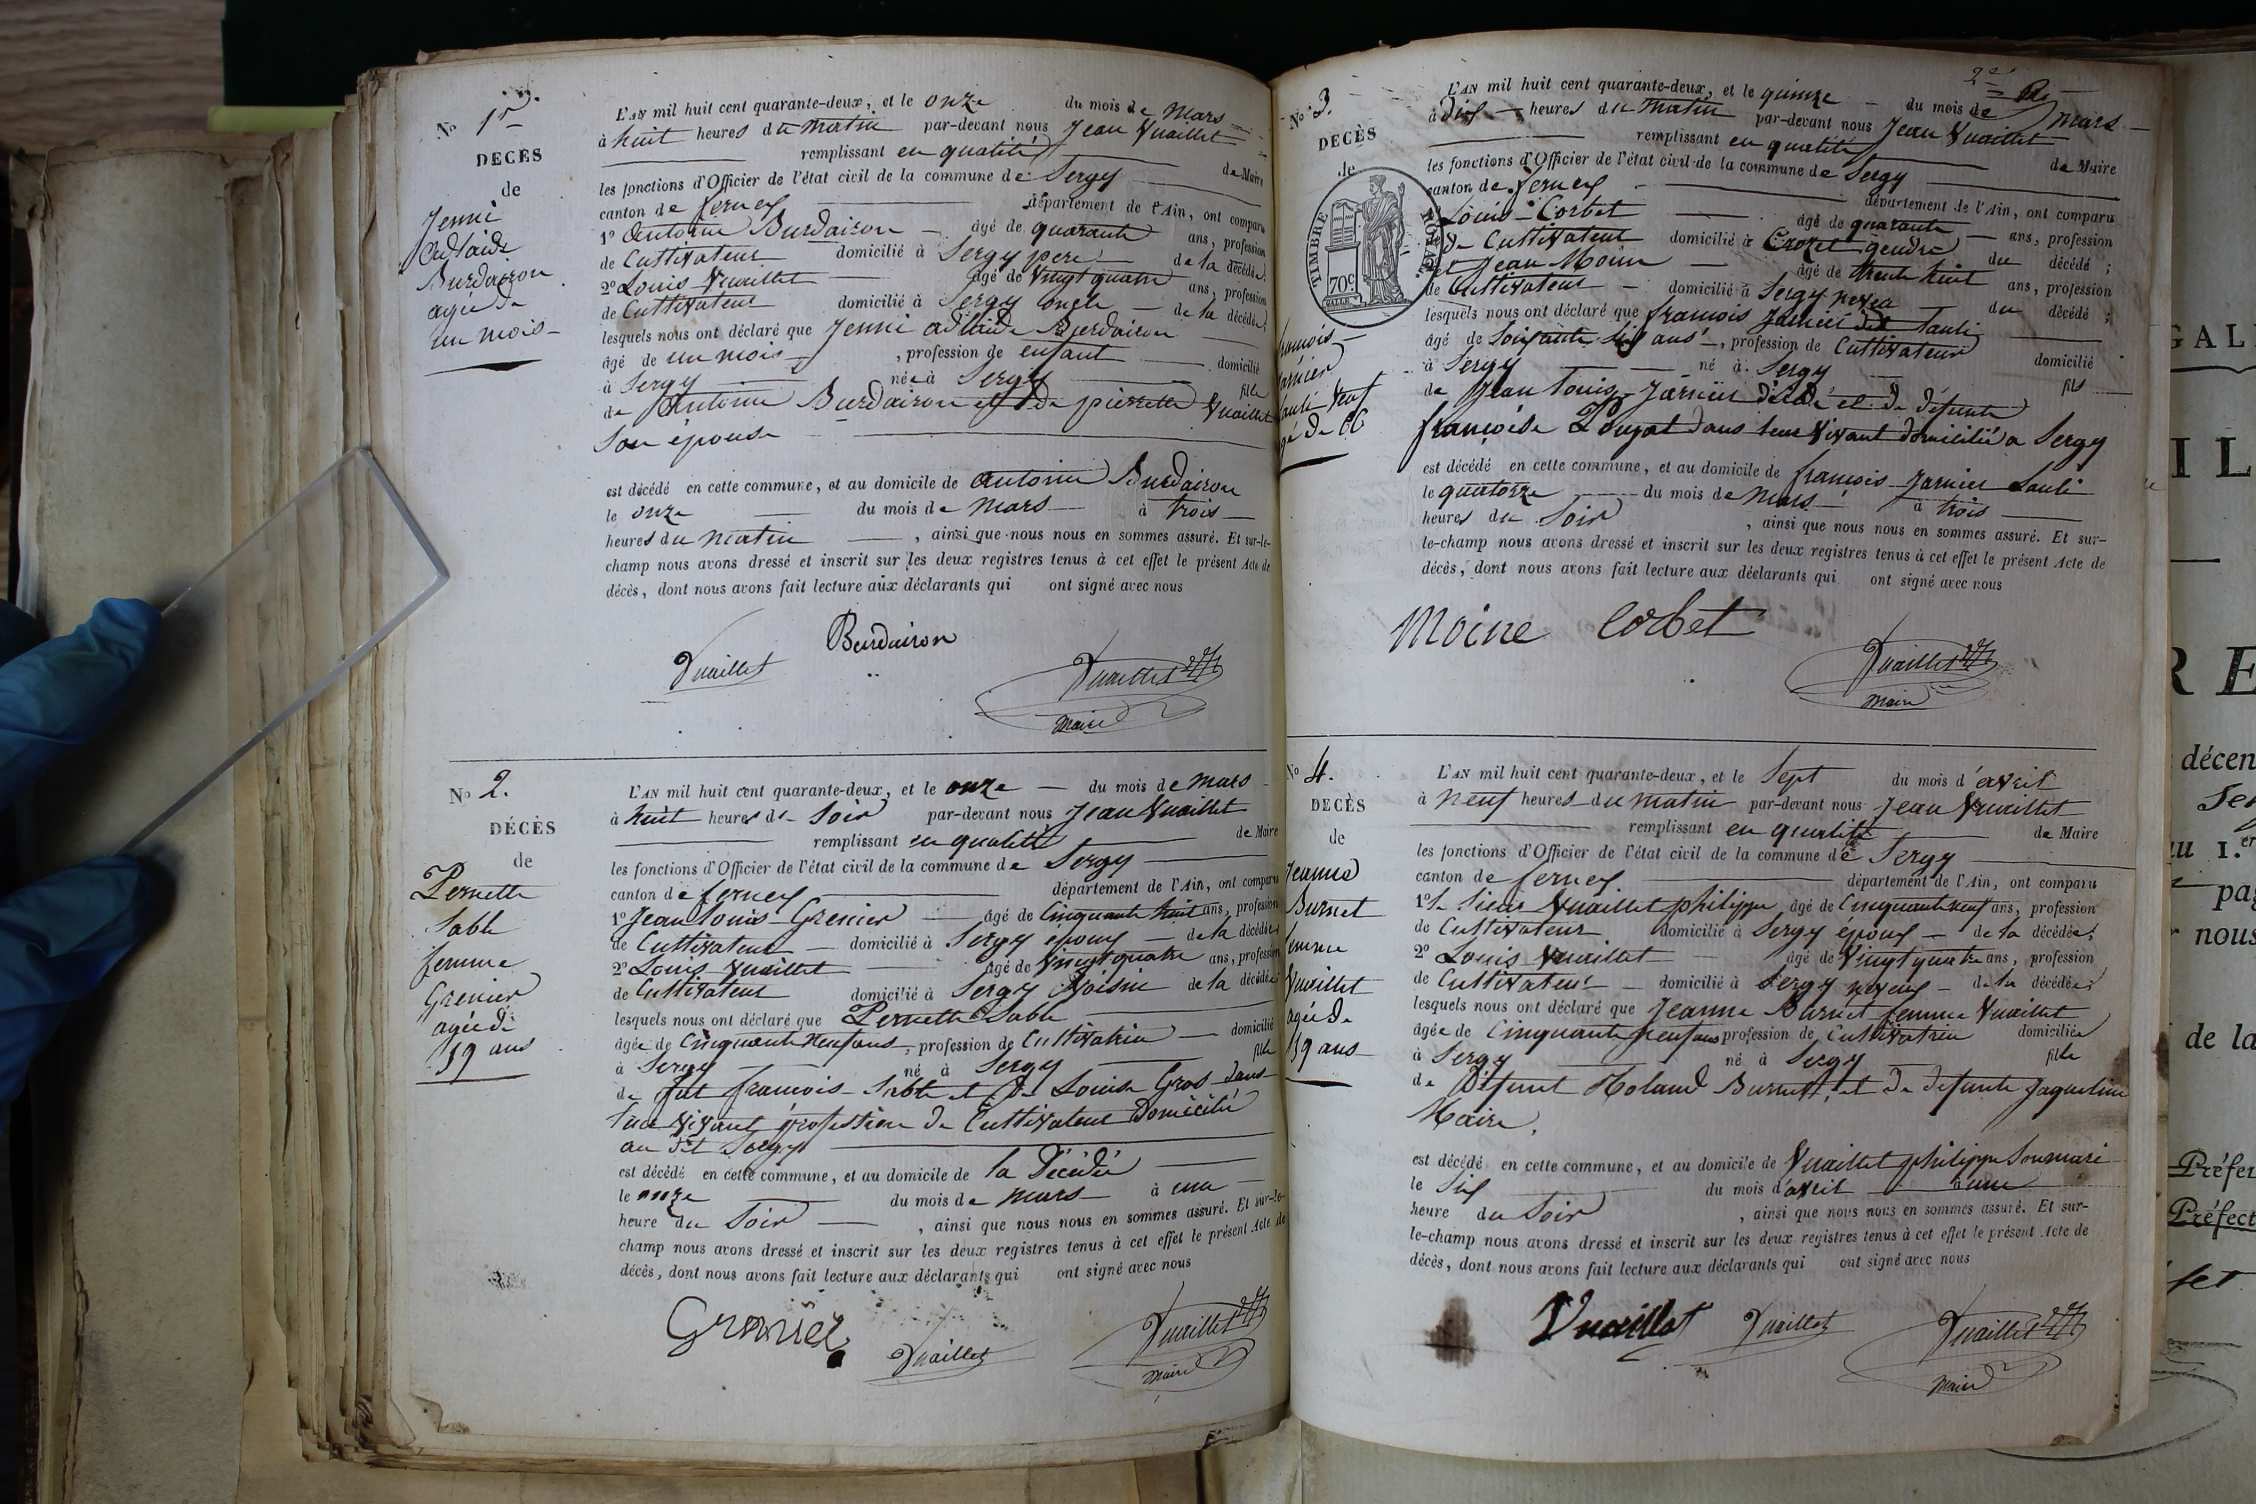 N° 1er
DECÈS
de
Jenni
Adlaide
Burdairon
agée de
un mois
L'AN mil huit cent quarante-deux, et le onze du mois de mars
à huit heures du matin par-devant nous Jean Vuaillet
remplissant en qualité de Maire
les fonctions d'Officier de l'état civil de la commune de Sergy
canton de ferney département de l'Ain, ont comparu
1° Antoine Burdairon âgé de quarante ans, profession
de Cultivateur domicilié à Sergy pere de la décédée;
2° Louis Vuaillet âgé de vingt quatre ans, profession
de Cultivateur domicilié à Sergy oncle de la décédée;
lesquels nous ont déclaré que Jenni adlaide Burdairon
âgé de un mois, profession de enfant domicilié
à Sergy née à Sergy fille
de Antoine Burdairon et de pierrette Vuaillet
Son épouse
est décédé en cette commune, et au domicile de Antoine Burdairon
le onze du mois de mars à trois
heures du matin, ainsi que nous nous en sommes assuré. Et sur-le-
champ nous avons dressé et inscrit sur les deux registres tenus à cet effet le présent Acte de
décès, dont nous avons fait lecture aux déclarants qui ont signé avec nous
Burdairon
Vuaillet Vuaillet
Maire
N° 2.
DÉCÈS
de
Pernette
Sable
femme
Grenier
agée de
59 ans
L'AN mil huit cent quarante-deux, et le onze du mois de mars
à huit heures de Soir par-devant nous Jean Vuaillet
remplissant en qualité de Maire
les fonctions d'Officier de l'état civil de la commune de Sergy
canton de ferney département de l'Ain, ont comparu
1° Jean Louis Grenier âgé de Cinquante huit ans, profession
de Cultivateur domicilié à Sergy époux de la décédée
2° Louis Vuaillet âgé de Vingt quatre ans, profession
de Cultivateur domicilié à Sergy Voisin de la décédée
lesquels nous ont déclaré que Pernette Sable
âgée de Cinquante neuf ans, profession de Cultivatrice domicilié
à Sergy né à Sergy fille
de fut francois Sable et de Louise Gros dans
leur vivant profession de Cultivateur Domicilié
au dit Sergy
est décédé en cette commune, et au domicile de la Décédée
le onze du mois de mars à une
heure du Soir, ainsi que nous nous en sommes assuré. Et sur-le-
champ nous avons dressé et inscrit sur les deux registres tenus à cet effet le présent Acte de
décès, dont nous avons fait lecture aux déclarants qui ont signé avec nous
Grenier
Vuaillet Vuaillet
Maire
N° 3.
DÉCÈS
de
TIMBRE ROYAL
70c
francois
Jarnier
Lauli Veuf
agé de 66
L'AN mil huit cent quarante-deux, et le quinze du mois de mars
à dix heures du matin par-devant nous Jean Vuaillet
remplissant en qualité de Maire
les fonctions d'Officier de l'état civil de la commune de Sergy
canton de ferney département de l'Ain, ont comparu
Louis Corbet âgé de quarante ans, profession
de Cultivateur domicilié à Crozet gendre du décédé;
et Jean Moine âgé de trente huit ans, profession
de Cultivateur domicilié à Sergy neveu du décédé;
lesquels nous ont déclaré que francois Jarnier dit Lauli
âgé de Soixante six ans, profession de Cultivateur domicilié
à Sergy né à Sergy fils
de Jean Louis Jarnier décédé et de défunte
françoise Pougat dans leur vivant domicilié a Sergy
est décédé en cette commune, et au domicile de francois Jarnier Lauli
le quatorze du mois de Mars à trois
heures du Soir, ainsi que nous nous en sommes assuré. Et sur-
le-champ nous avons dressé et inscrit sur les deux registres tenus à cet effet le présent Acte de
décès, dont nous avons fait lecture aux déclarants qui ont signé avec nous
Moine Corbet
Vuaillet
Maire
N° 4.
DÉCÈS
de
Jeanne
Burnet
femme
Vuaillet
agée de
59 ans
L'AN mil huit cent quarante-deux, et le Sept du mois d'avril
à neuf heures du matin par-devant nous Jean Vuaillet
remplissant en qualité de Maire
les fonctions d'Officier de l'état civil de la commune de Sergy
canton de ferney département de l'Ain, ont comparu
1° le Sieur Vuaillet philippe âgé de Cinquante neuf ans, profession
de Cultivateur domicilié à Sergy époux de la décédée;
2° Louis Vuaillet âgé de Vingt quatre ans, profession
de Cultivateur domicilié à Sergy neveux de la décédée;
lesquels nous ont déclaré que Jeanne Burnet femme Vuaillet
âgée de Cinquante neuf ans profession de Cultivatrice domiciliée
à Sergy né à Sergy fille
de Défunt Roland Burnet, et de défunte Jaqueline
Maire.
est décédé en cette commune, et au domicile de Vuaillet philippe Son mari
le Six du mois d'avril à une
heure du Soir, ainsi que nous nous en sommes assuré. Et sur-
le-champ nous avons dressé et inscrit sur les deux registres tenus à cet effet le présent Acte de
décès, dont nous avons fait lecture aux déclarants qui ont signé avec nous
Vuaillet Vuaillet Vuaillet
Maire
décen
au 1.er
pag
nous
de la
Préfet
Préfect